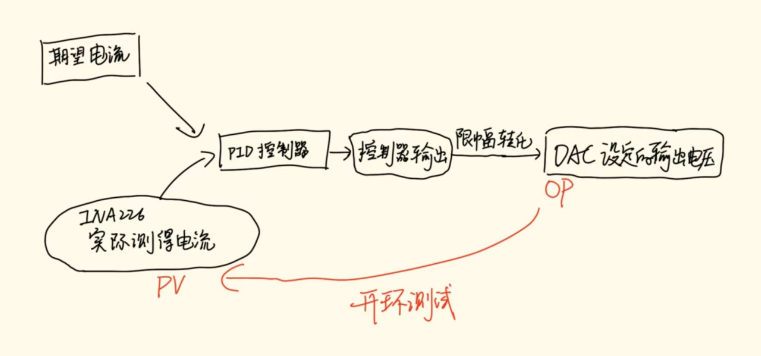 期望电流
PID控制器
控制器输出
限幅转化
DAC 设定的输出电压
OP
INA226
实际测得电流
PV
开环测试